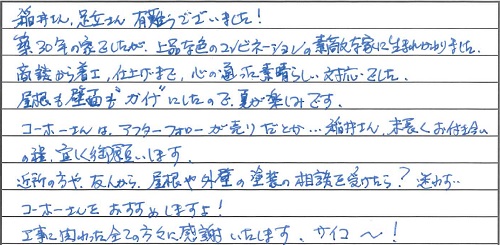 稲井さん,足立さん 有難うございました!
築30年の家でしたが、上品な色のコンビネーションの素敵な家に生まれかわりました.
商談から着工,仕上げまで、心の通った素晴らしい対応でした.
屋根も壁面も"ガイナ"にしたので、夏が楽しみです.
コーホーさんは、アフターフォローが売りだとか…稲井さん、末長くお付き合い
の程、宜しく御願いします.
近所の方や、友人から、屋根や外壁の塗装の相談を受けたら?迷わず…
コーホーさんをおすすめしますよ!
工事に関わった全ての方々に感謝いたします、サイコ〜!